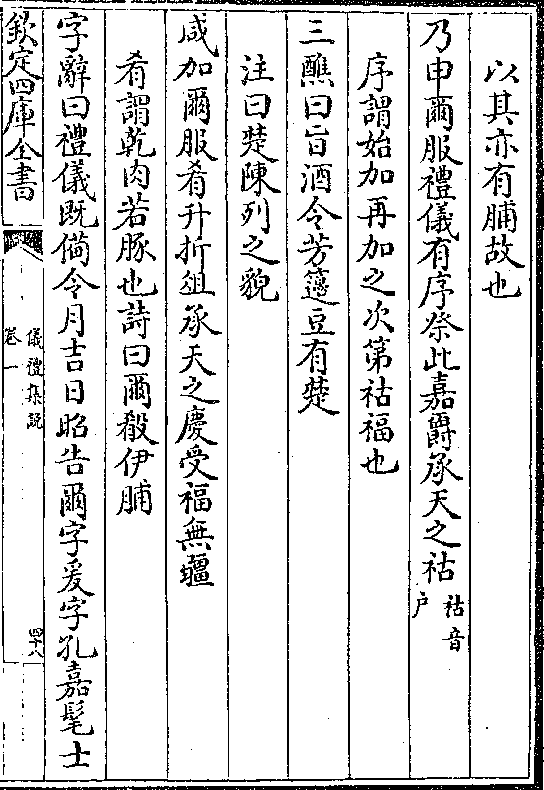 以其亦有脯故也
乃申爾服禮儀有序祭此嘉爵承天之祜祜音戶
序謂始加再加之次第祜福也
三醮曰旨酒令芳籩豆有楚
注曰楚陳列之貌
咸加爾服肴升折俎承天之慶受福無疆
肴謂乾肉若豚也詩曰爾殽伊脯
字辭曰禮儀既備令月吉日昭告爾字爰字孔嘉髦士
欽定四庫全書
儀禮集說
卷一
四十八